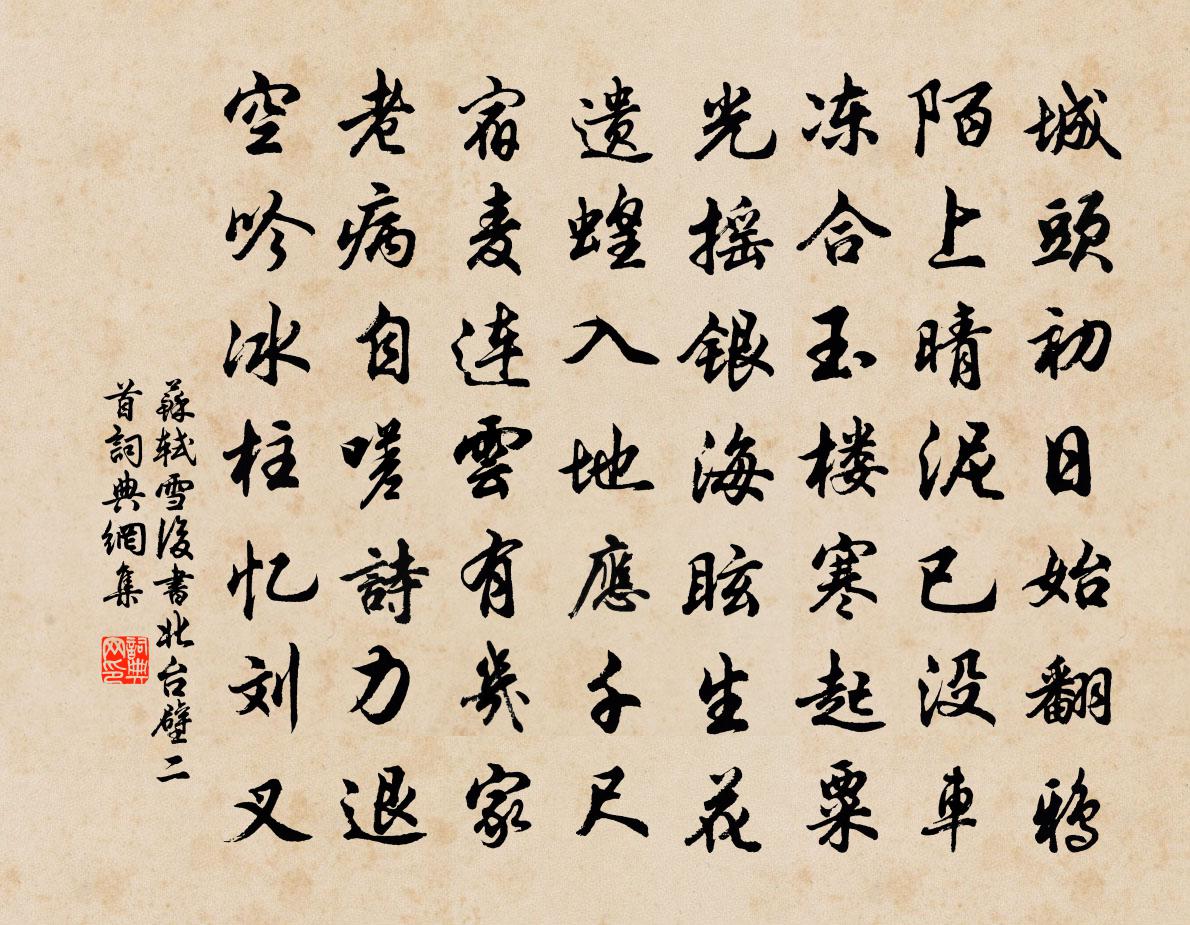 城頭初日始翻鸦
陌上晴泥已没車
冻合玉楼寒起粟
光摇銀海眩生花
遗蝗入地應千尺
宿麦连雲有幾家
老病自嗟詩力退
空吟冰柱忆刘叉
蘇軾雪後書北台壁二
首詞典網集
詞典
网印